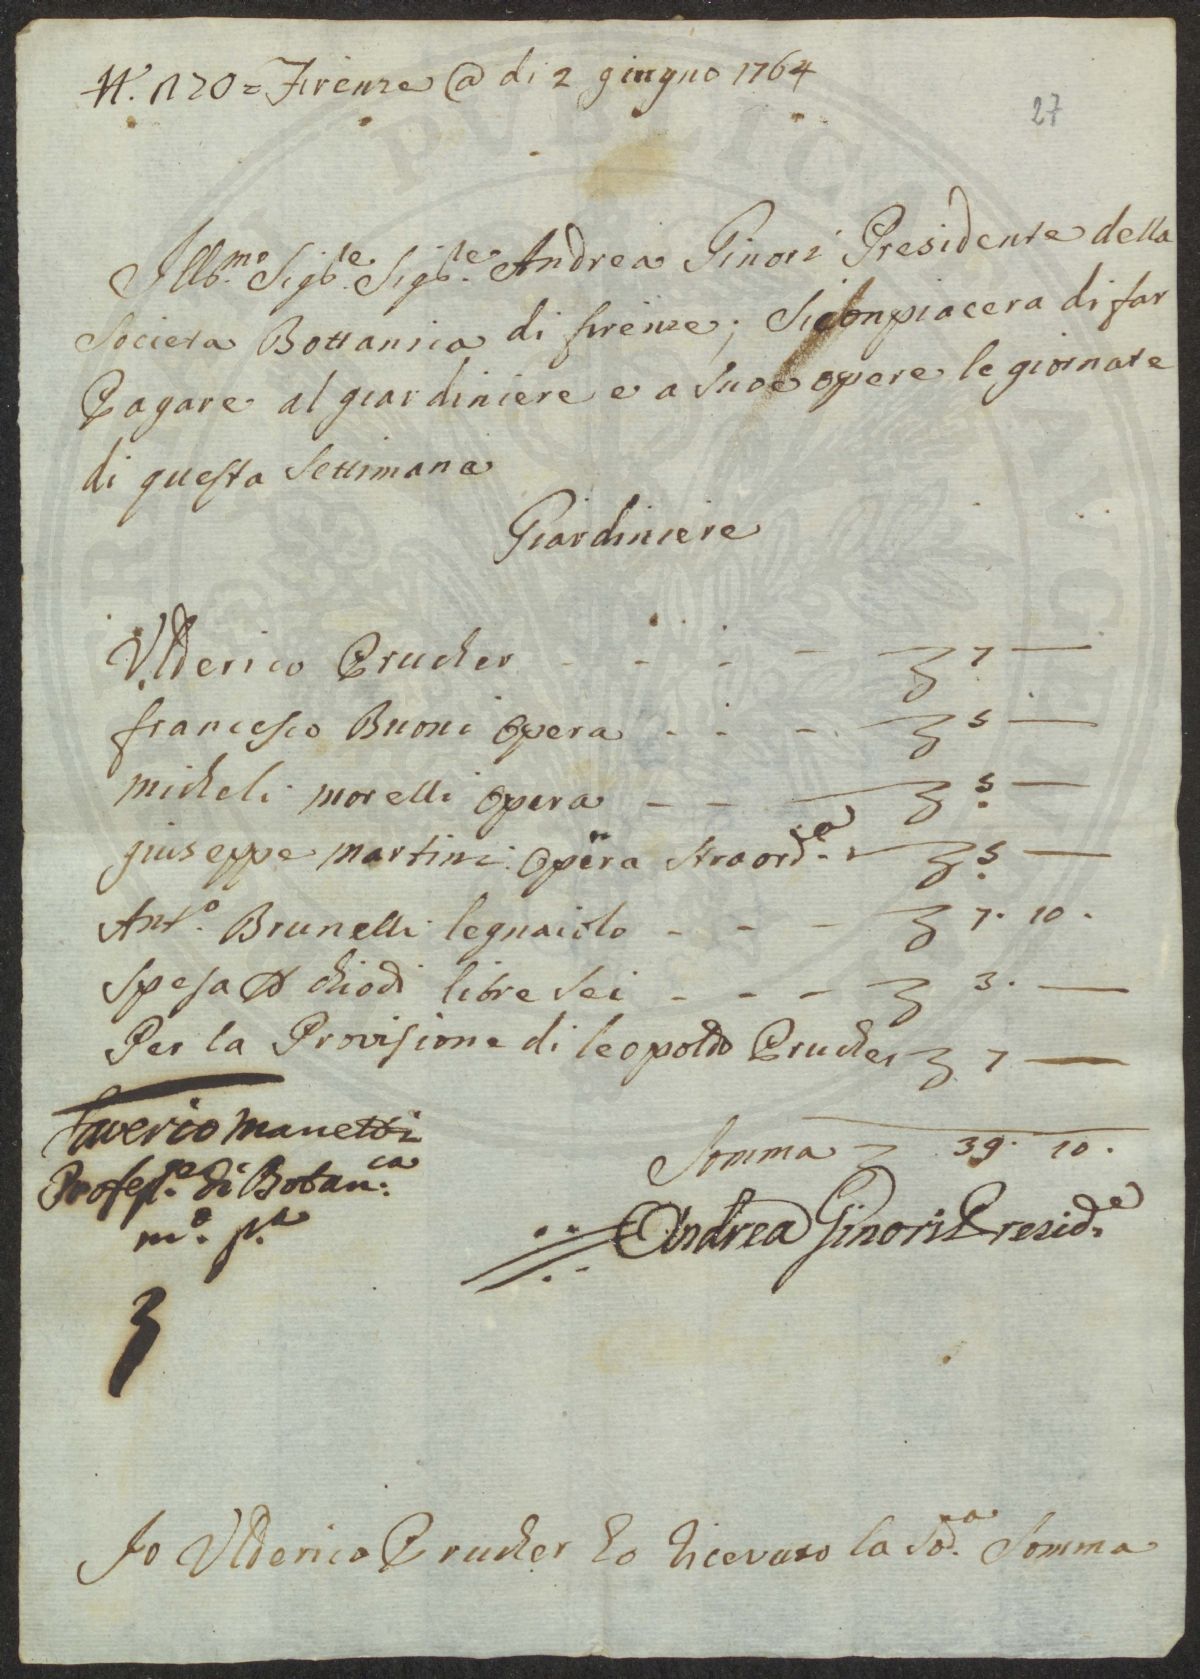 N. 120 = Firenze @ di 2 giugno 1764
27
Ill.mo Sig.re Sig.re Andrea Ginori Presidente della
Societa Bottanica di firenze; Si Conpiacera di far
Pagare al giardiniere e a Sue opere le giornate
di questa Settimana
Giardiniere
Ulderico Prucher - - - - - 7 —
francesco Buoni opera - - - 5 —
micheli morelli opera - - - 5 —
giuseppe martini opera straord.a 5 —
Ant.o Brunelli legnaiolo - - - 7. 10.
spesa di chiodi libre sei - - - 3. —
Per la Provisione di leopoldo Prucher 7 —
Somma 39. 10.
Saverio Manetti
Profes.re di Botan.ca
m.o p.a
Andrea Ginori Presid.e
Io Ulderico Prucher ho Ricevuto la Sod.a Somma